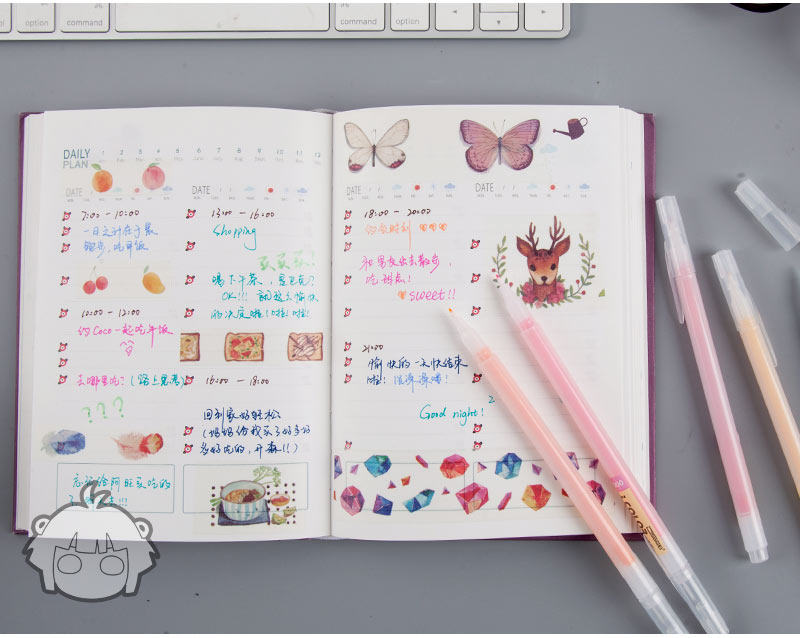 option
command
command
option
DAILY
PLAN
1 2 3 4 5 6 7 8 9 10 11 12
DATE
7:00 - 10:00
一日之计在于晨
跑步,吃早饭
10:00 - 12:00
约Coco一起吃午饭
去哪里吃?(路上思考)
???
忘记给阿旺买吃的
DATE
13:00 - 16:00
Shopping
买买买!
喝下午茶,
OK!!!
的决定啦!啦!啦!
16:00 - 18:00
回到家好轻松
(妈妈给我买了好多好
多好吃的,开森!!)
DATE
18:00 - 20:00
和男友出去散步,
吃甜点!
sweet!!
21:00
愉快的一天快结束
啦!
Good night!
DATE
COLOR